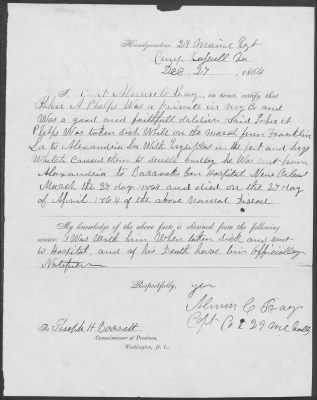 Headquarters 29 Maine Regt
Camp Russell Va
Dec 27 1864
I Capt Almon C Pray, on honor, certify that
John A Phelps Was a private in my Co and
Was a good and faithfull Soldier Said John A
Phelps Was taken Sick While on the March from Franklin
La to Alexandria La With Erysipelas in the feet and legs
Which Caused them to Swell badley he Was Sent from
Alexandria to Barracks Gen Hospital New Orleans
March the 27 day 1864 and died on the 27 day
of April 1864 of the above named Disease
My knowledge of the above facts is obtained from the following
source: I Was With him When taken Sick and sent
to Hospital, and of his Death have bin Officialley
Notified
Respectfully, yrs
Almon C Pray
Capt Co 29 Me
To Joseph H Barrett
Commissioner of Pensions,
Washington, D. C.